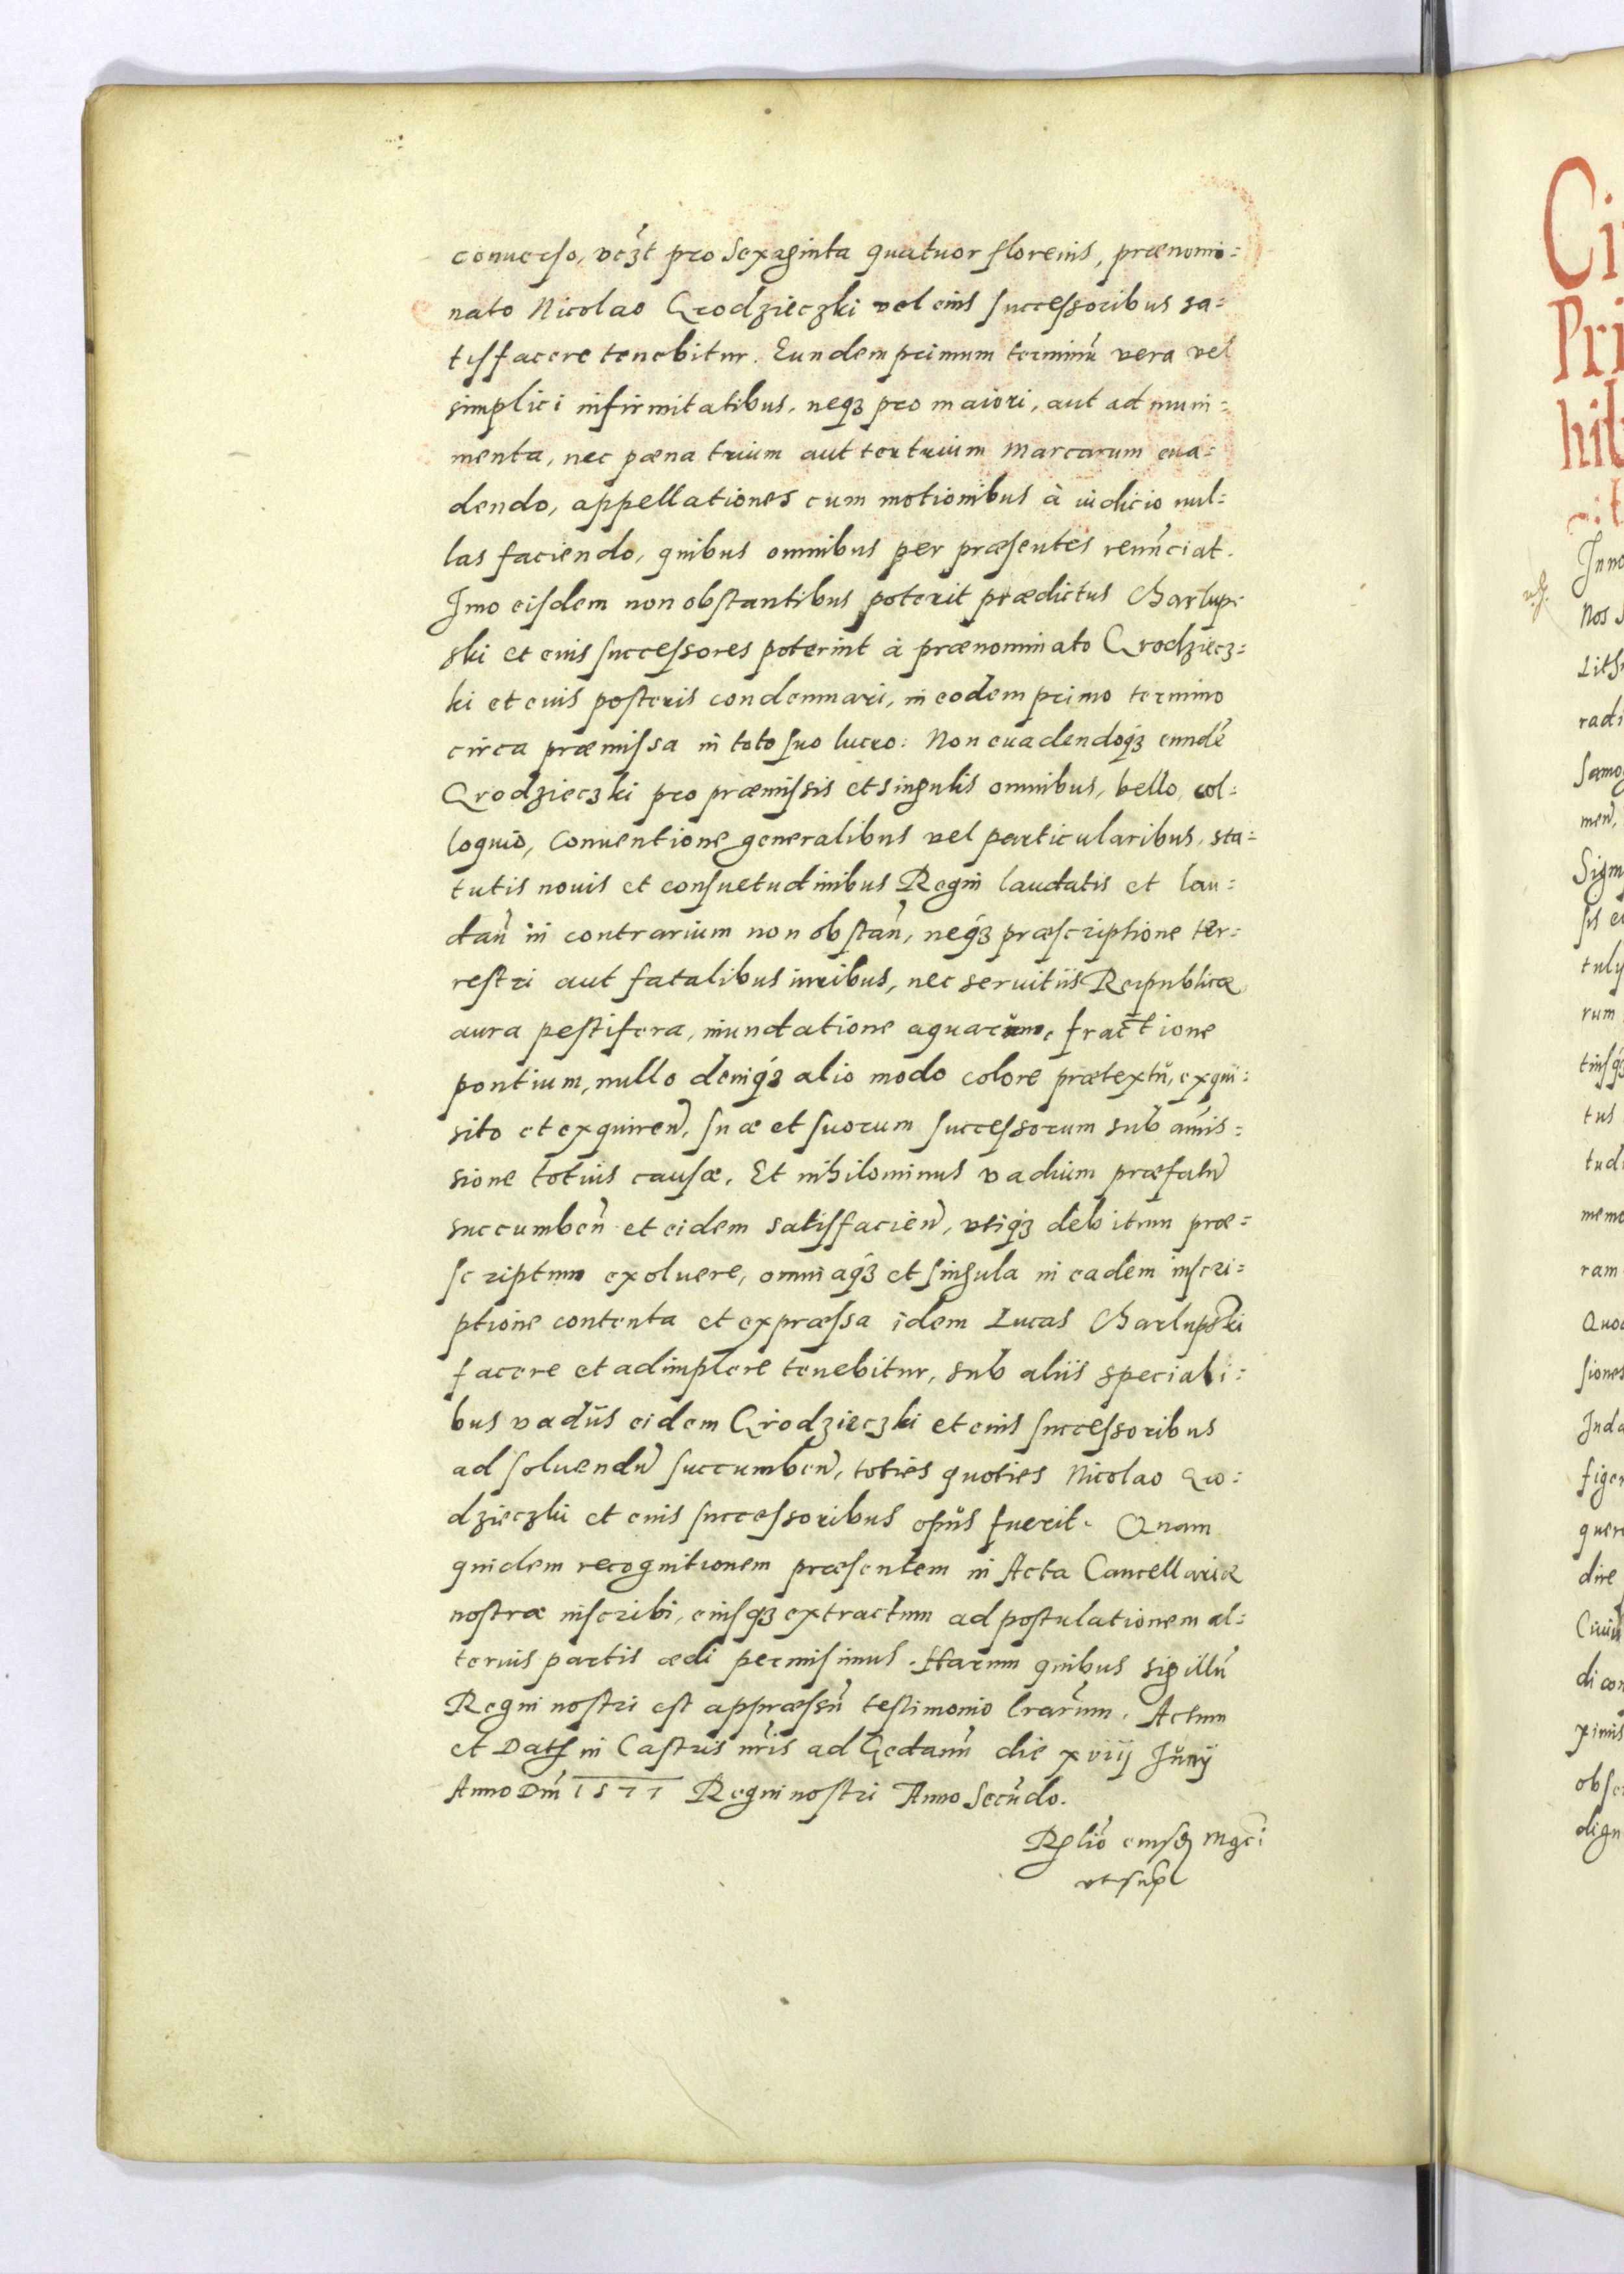 conuerso, vczt pro Sexaginta quatuor florenis, prænomi=
nato Nicolao Grodzieczki vel eius successoribus sa=
tisfacere tenebitur. Eundem primum terminū vera vel
simplici infirmitatibus, neqȝ pro maiori, aut ad muni=
menta, nec pæna trium aut ter trium Marcarum eua=
dendo, appellationes cum motionibus à iudicio nul=
las faciendo, quibus omnibus per præsentes renūciat.
Imo eisdem non obstantibus poterit prædictus Charlups=
ski et eius successores poterint à prænominato Grodziecz=
ki et eius posteris condemnari, in eodem primo termino
circa præmissa in toto suo lucro: Non euadendoqȝ eundē
Grodzieczki pro præmissis et singulis omnibus, bello, col=
loquio, Conuentione generalibus vel particularibus, sta=
tutis nouis et consuetudinibus Regni laudatis et lau=
dan̄ in contrarium non obstan̄, neqȝ præscriptione ter=
restri aut fatalibus iuribus, nec seruitiis Reipublicæ
aura pestifera, inundatione aquarum, fractione
pontium, nullo deniqȝ alio modo colore prætextū, exqui=
sito et exquiren̄, suæ et suorum successorum sub amis=
sione totius causæ. Et nihilominus vadium præfatū
succumben̄ et eidem satisfacien̄, vtiqȝ debitum præ=
scriptum exoluere, omniaqȝ et singula in eadem inscri=
ptione contenta et expræssa idem Lucas Charlupski
facere et adimplere tenebitur, sub aliis speciali=
bus vadiis eidem Grodzieczki et eius successoribus
ad soluendū succumben̄, toties quoties Nicolao Gro=
dzieczki et eius successoribus opus fuerit. Quam
quidem recognitionem præsentem in Acta Cancellariæ
nostræ inscribi, eiusqȝ extractum ad postulationem al=
terius partis ædi permisimus. Harum quibus sigillū
Regni nostri est appræssū testimonio lrarum. Actum
et Dat in Castris nr̄is ad Gedanū die xviij Junij
Anno Dnī 1577 Regni nostri Anno Secūdo.
Rlio eiusdē Mgci
vt supra
Ci
Pri
hil
Inno
Nos S
Lith
radi
Samog
men̄,
Sigm
sis et
tuly
rum
tinsqȝ
tus
tudi
memo
ram
Quod
siones
Juda
figer
quer
dire
Ciuiū
di con
ximis
obser
dign